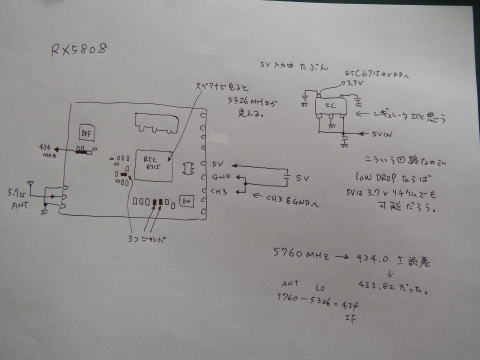 RX5808
スペアナで見ると
5326MHzが
見える。
5V入力は たぶん
RTC6715のVDDへ
3.3V
IC
レギュレータICと思う
5VIN
434
MHz
BPF
RTC
6715
5.7G
ANT
8M
5V
GND
CH3
5V
CH3をGNDへ
3つジャンパ
こういう回路なので
LOW DROPならば
5Vは3.7Vリチウムでも
可能だろう。
5760MHz → 434.0 ± 誤差
↓
433.82だった。
ANT LO
5760-5326=434
IF